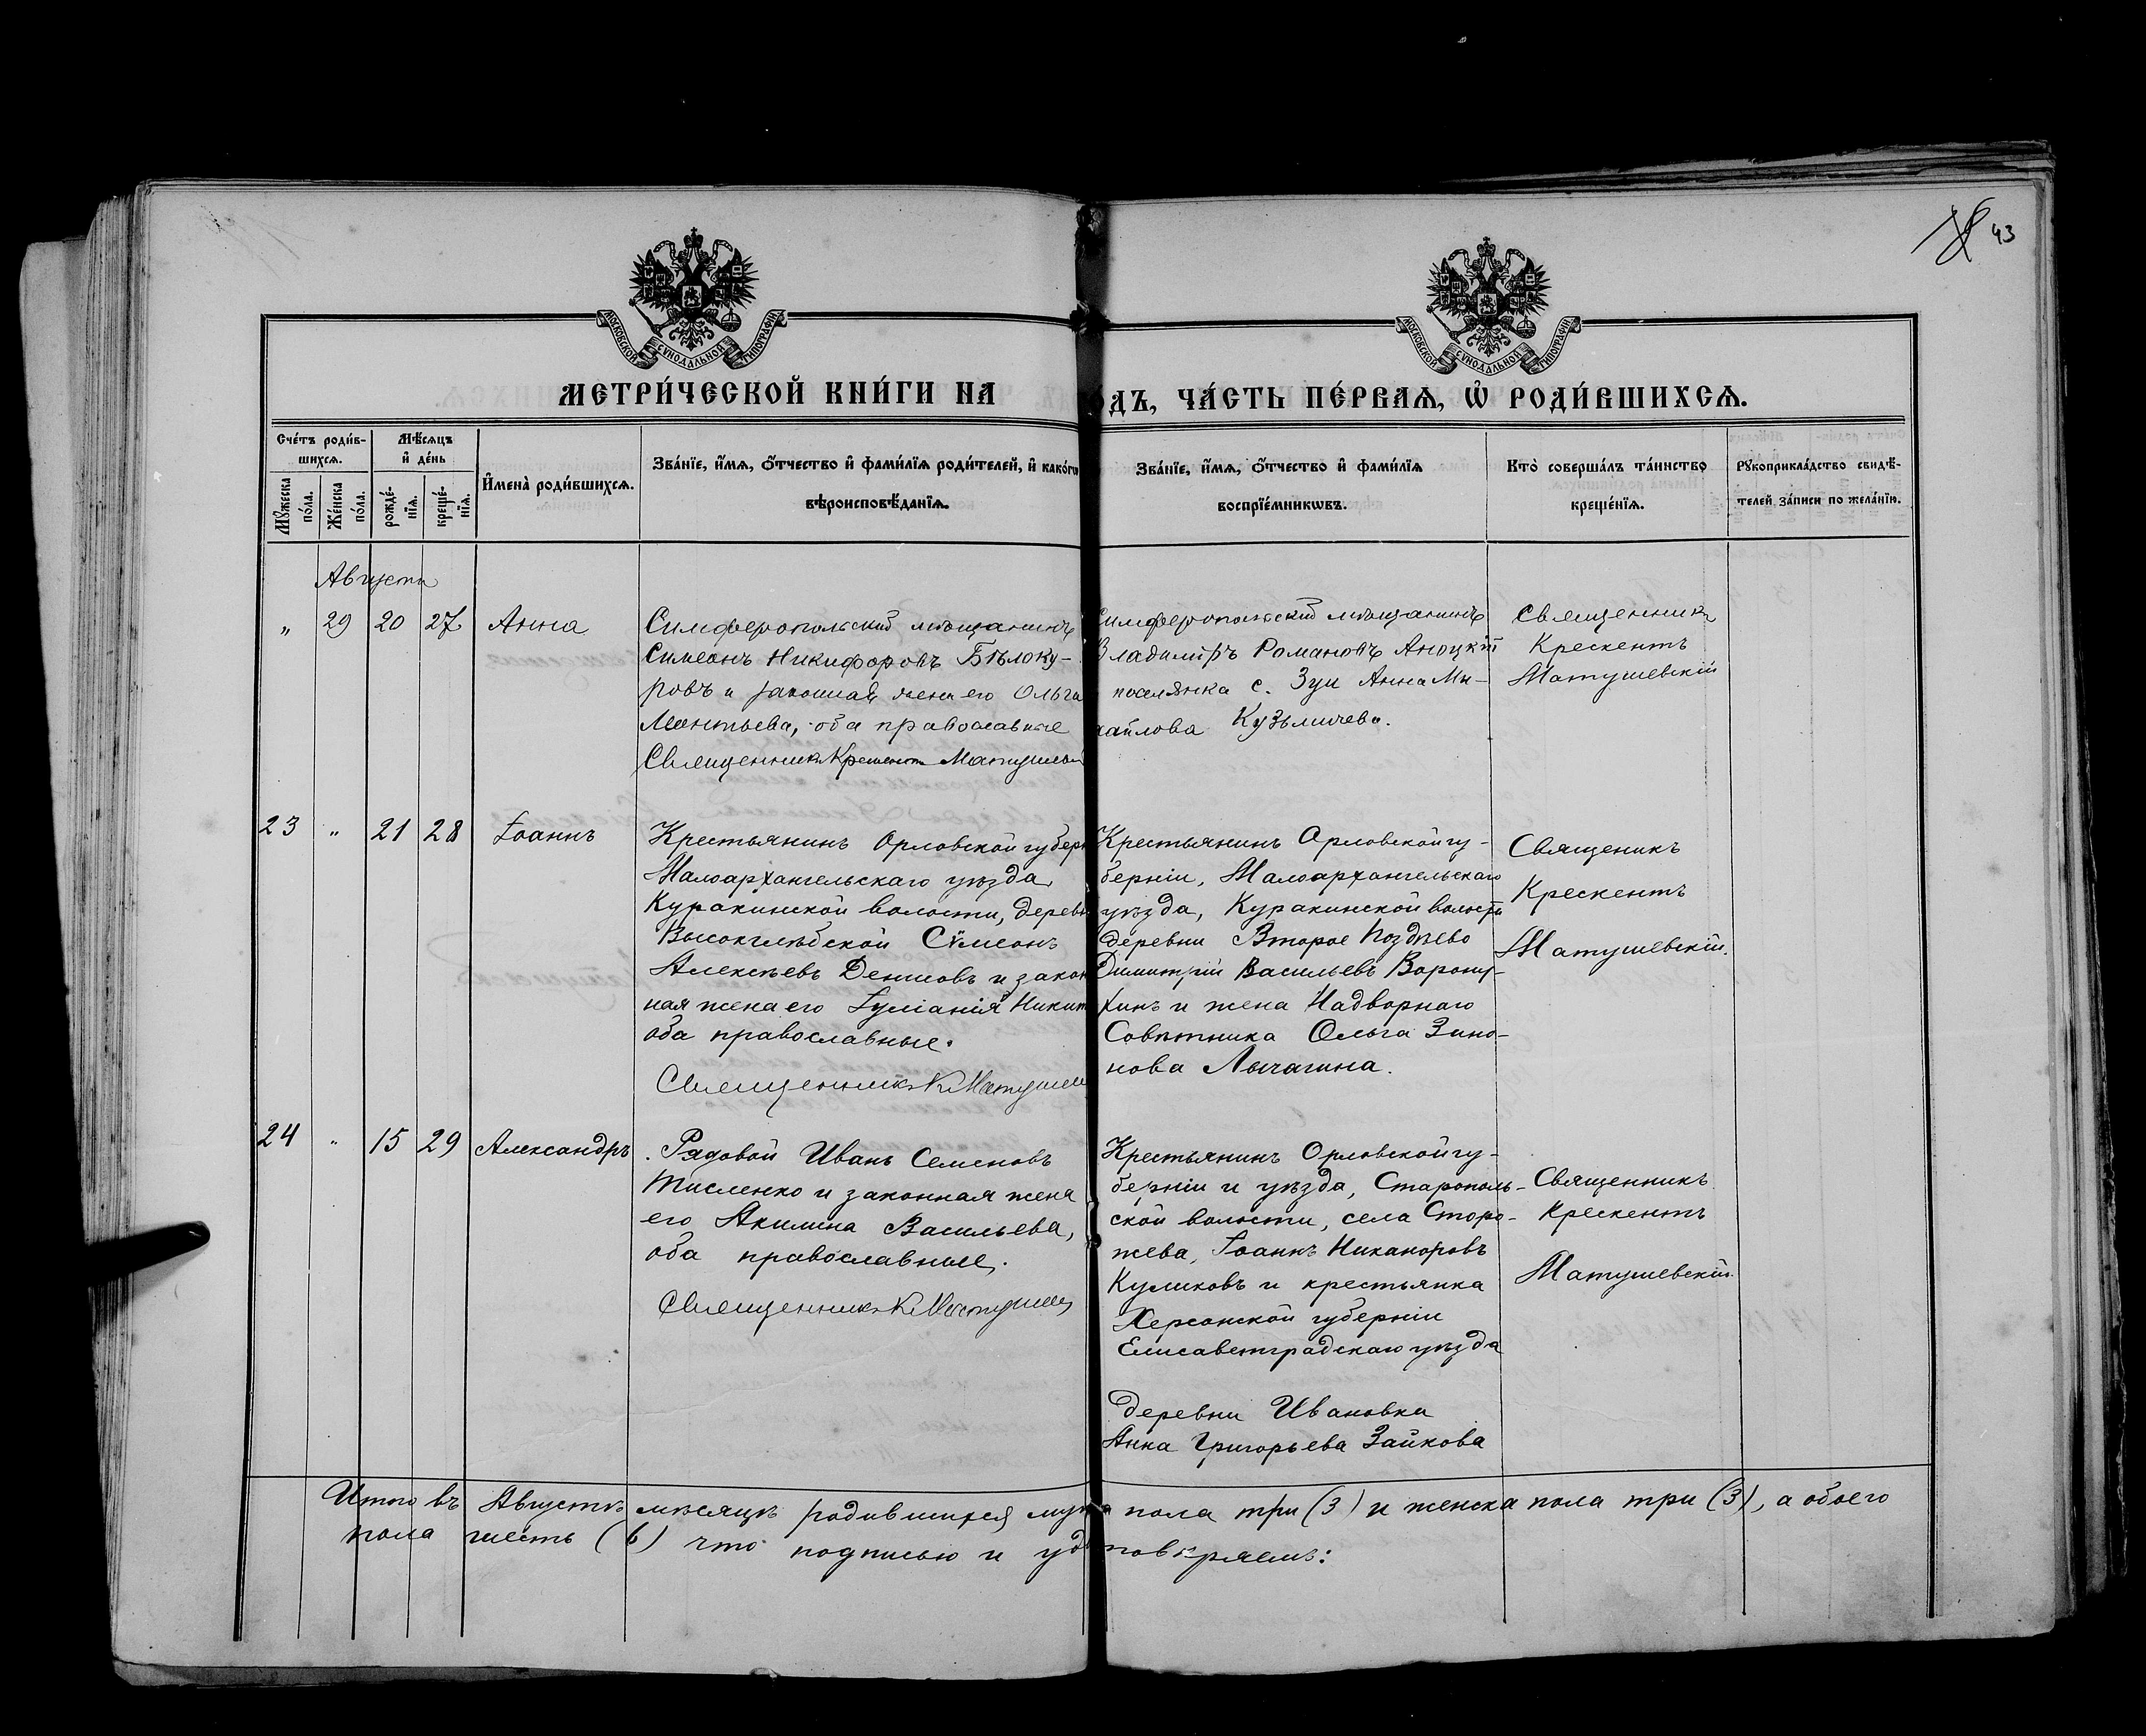 43
МОСКОВСКОЙ СѴНОДАЛЬНОЙ ТИПОГРАФІИ
МОСКОВСКОЙ СѴНОДАЛЬНОЙ ТИПОГРАФІИ
МЕТРИ́ЧЕСКОЙ КНИ́ГИ НА
ОДЪ, ЧА́СТЬ ПЕ́РВАѦ, Ѡ҆ РОДИ́ВШИХСѦ.
Сче́тъ роди́в-
шихсѧ.
Мꙋ́жеска по́ла.
Же́нска по́ла.
Мѣ́сѧцъ
и҆ де́нь
рожде́-
нїѧ.
креще́-
нїѧ.
И҆мена̀ роди́вшихсѧ.
Зва́нїе, и҆́мѧ, ѻ҆́тчество и҆ фами́лїѧ роди́телей, и҆ како́гѡ
вѣроисповѣ́данїѧ.
Зва́нїе, и҆́мѧ, ѻ҆́тчество и҆ фами́лїѧ
воспрїе́мникѡвъ.
Кто̀ соверша́лъ та́инство
креще́нїѧ.
Рꙋкоприкла́дство свидѣ́-
телей за́писи по жела́нїю.
Августъ
" 29 20 27 Анна
Симферопольскій мѣщанинъ
Симеонъ Никифоровъ Бѣлоку-
ровъ и законная жена его Ольга
Леонтьева, оба православные
Священникъ Крескентъ Матушев
Симферопольскій мѣщанинъ
Владиміръ Романовъ Аноцкій
поселянка с. Зуи Анна Ми-
хайлова Кузьмичева.
Священникъ
Крескентъ
Матушевскій
23 " 21 28 Іоаннъ
Крестьянинъ Орловской губерн
Малоархангельскаго уѣзда,
Куракинской волости, деревн
Симеонъ
Алексѣевъ Денисовъ и закон
ная жена его Іуліанія Никит
оба православные.
Священникъ К Матушев
Крестьянинъ Орловской гу-
берніи, Малоархангельскаго
уѣзда, Куракинской волости
деревни Второе Поздѣево
Димитрій Васильевъ Ворону-
хинъ и жена Надворнаго
Совѣтника Ольга Зино-
нова Лычагина.
Священикъ
Крескентъ
Матушевскій.
24 " 15 29 Александръ
Рядовой Иванъ Семеновъ
Тисленко и законная жена
его Акилина Васильева,
оба православные.
Священникъ К Матушев
Крестьянинъ Орловской гу-
берніи и уѣзда, Старополь-
ской волости, села Сторо-
жева, Іоаннъ Никаноровъ
Куликовъ и крестьянка
Херсонской губерніи
Елисаветградскаго уѣзда
деревни Ивановки
Анна Григорьева Зайкова
Священникъ
Крескентъ
Матушевскій.
Итого въ Августѣ мѣсяцѣ родившихся муж пола три (3) и женска пола три (3), а обоего
пола шесть (6) что подписью и удостовѣряемъ: